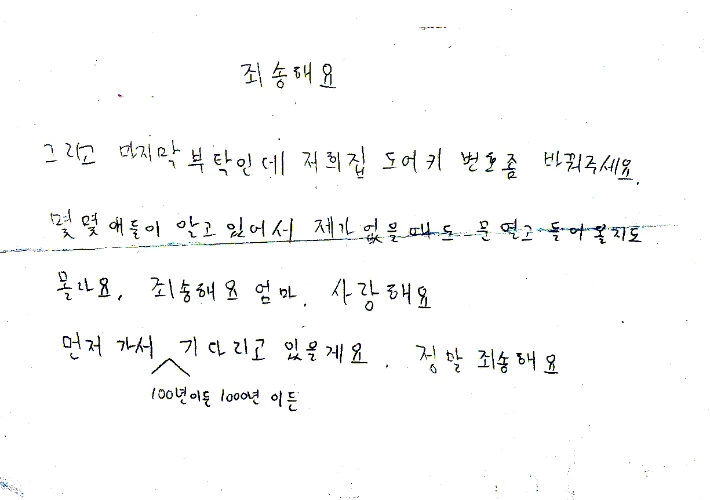 죄송해요
그리고 마지막 부탁인데 저희집 도어키 번호좀 바꿔주세요.
몇몇 애들이 알고 있어서 제가 없을때도 문 열고 들어올지도
몰라요. 죄송해요 엄마. 사랑해요
먼저 가서 기다리고 있을게요. 정말 죄송해요
100년이든 1000년 이든